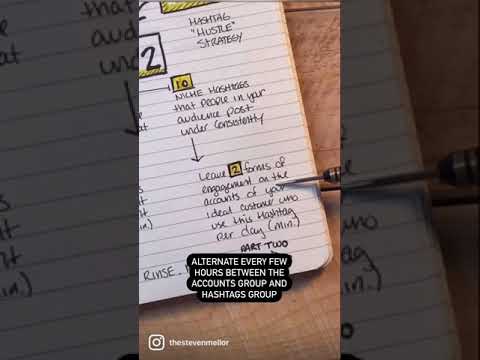 HASHTAG
"HUSTLE"
STRATEGY
2
10
NICHE HASHTAGS
that PEOPLE IN your
audience post
under consistently
Leave 2 forms of
engagement on the
accounts of your
ideal customer who
use this Hashtag
per day (min.)
PART TWO
RINSE
ALTERNATE EVERY FEW
HOURS BETWEEN THE
ACCOUNTS GROUP AND
HASHTAGS GROUP
thestevenmellor